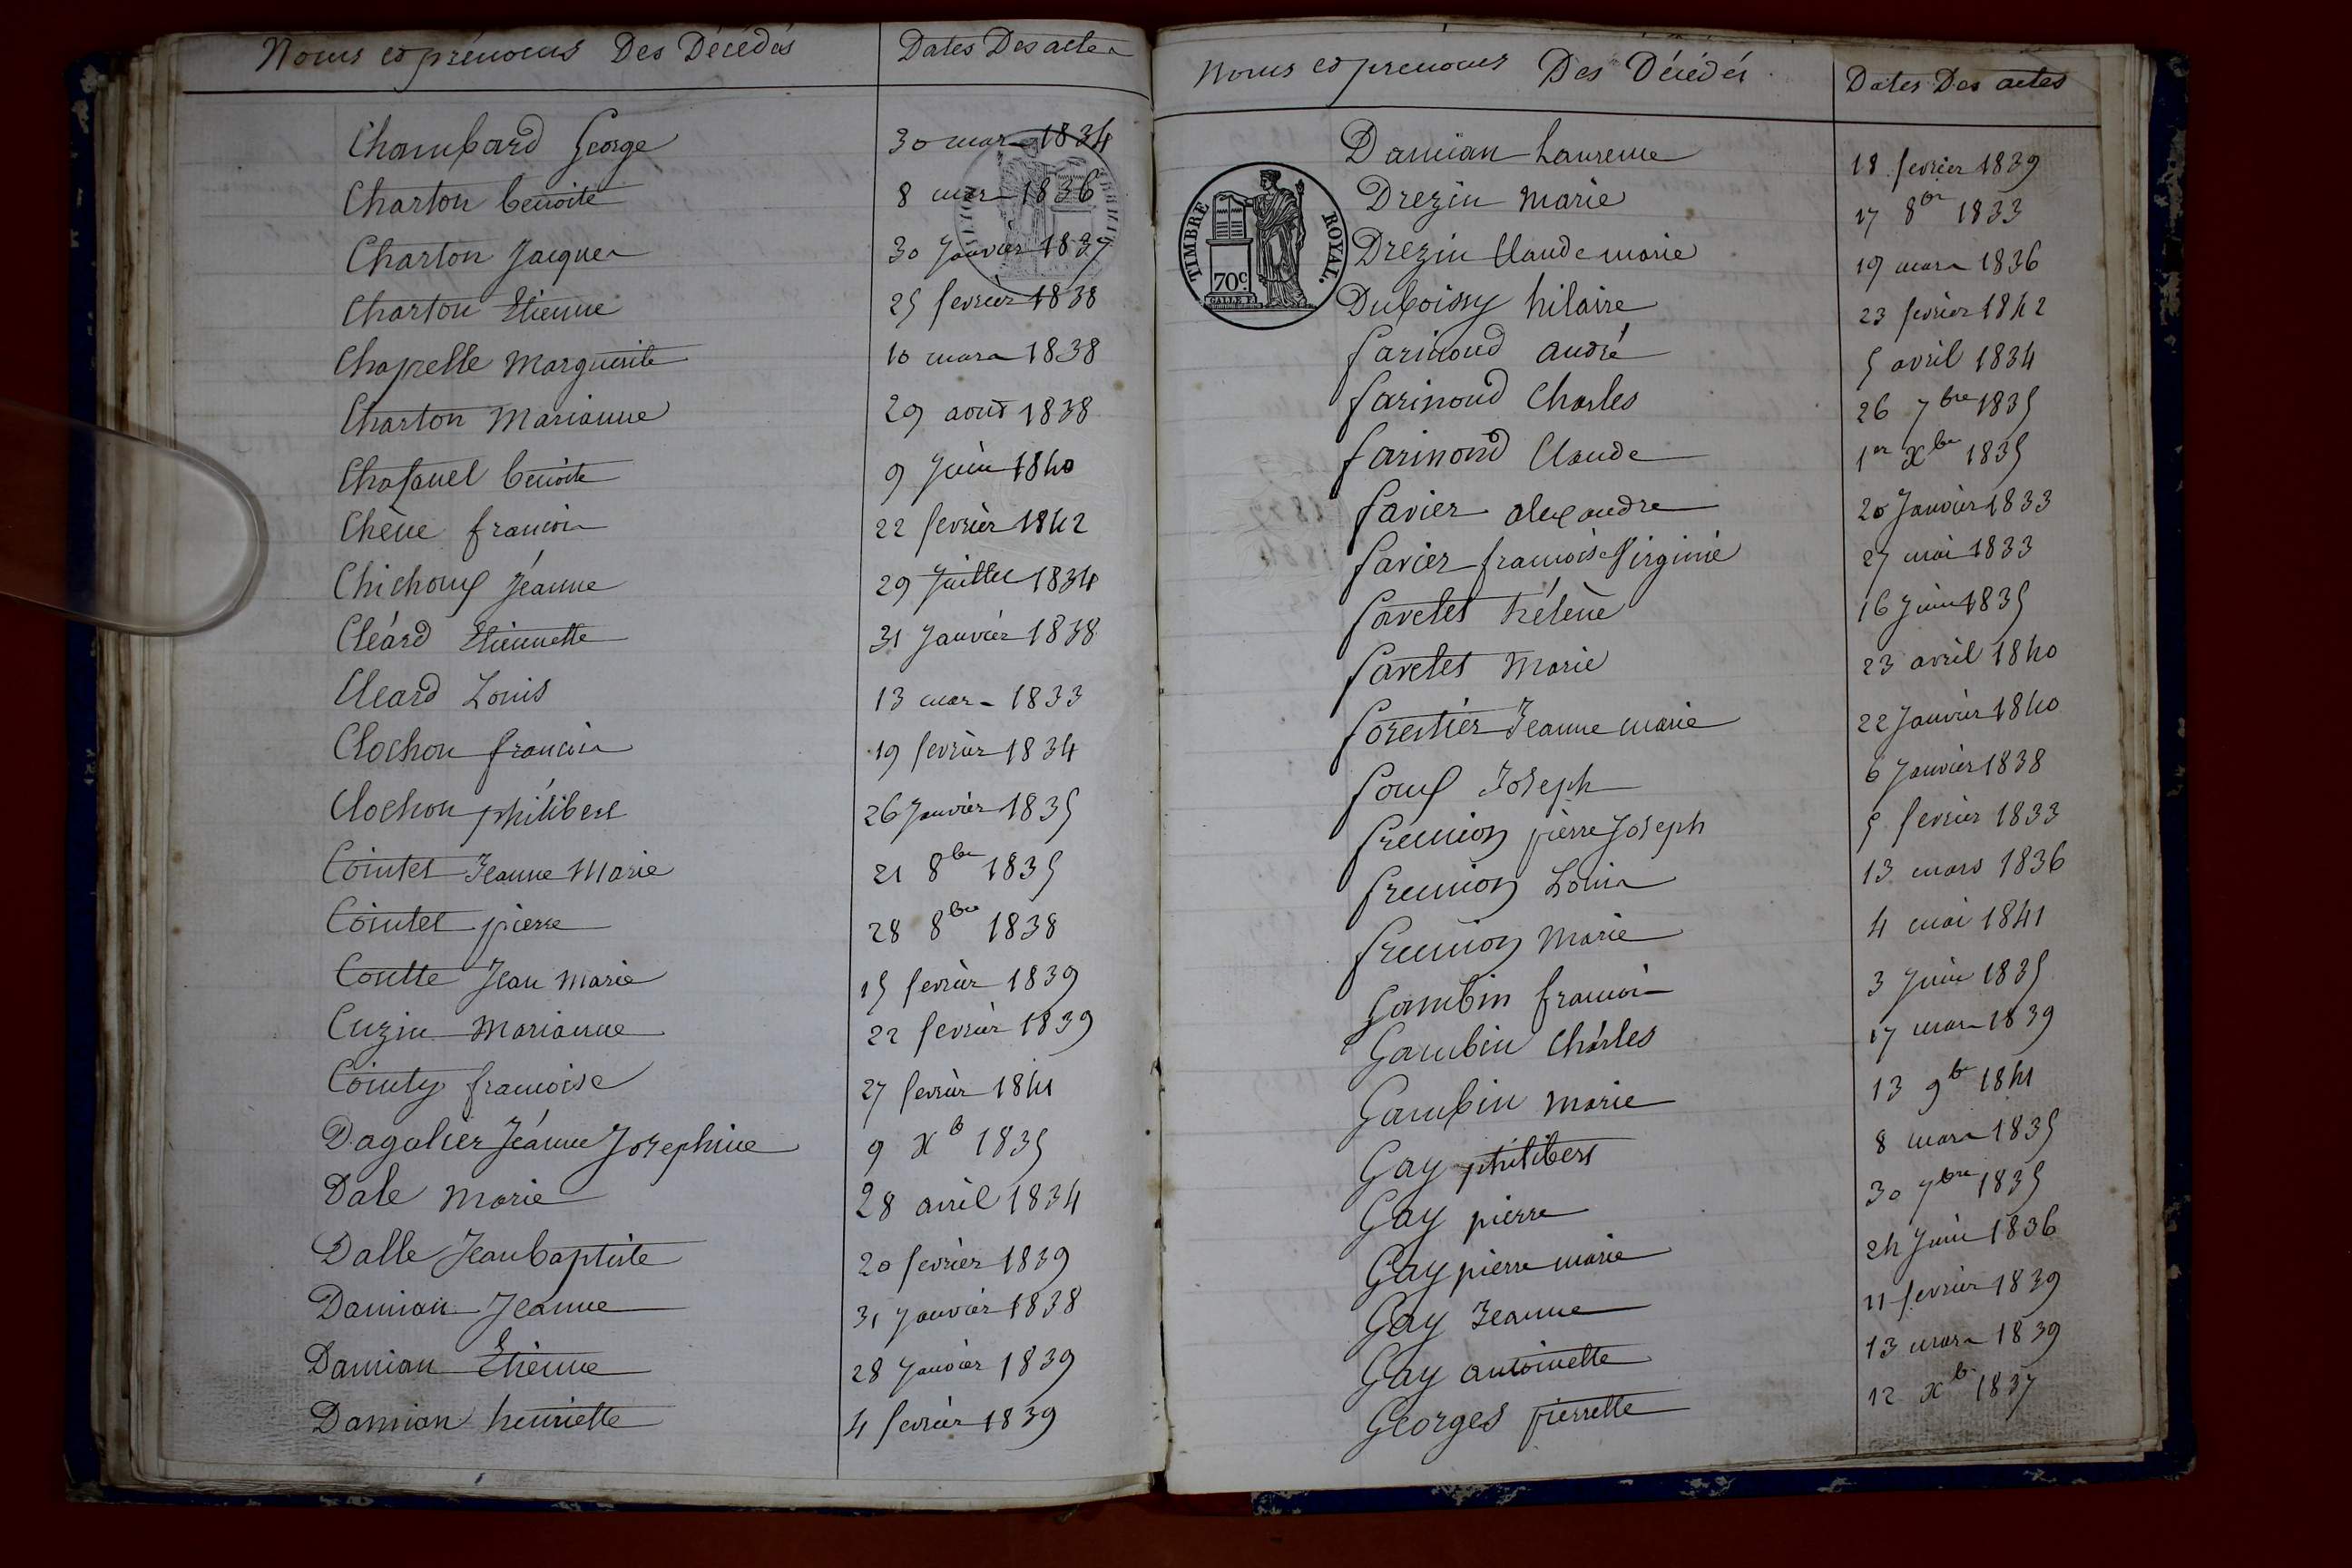 Noms et prénoms Des Décédés Dates Des actes
Chambard George 30 mars 1834
Charton benoite 8 mars 1836
Charton Jacques 30 Janvier 1837
Charton Etienne 25 fevrier 1838
Chapelle Marguerite 10 mars 1838
Charton Marianne 29 aout 1838
Chafanel benoite 9 Juin 1840
Chêne francois 22 fevrier 1842
Chichoux Jeanne 29 Juillet 1834
Cléard Etiennette 31 Janvier 1838
Cleard Louis 13 mars 1833
Clochon francois 19 fevrier 1834
Clochon philibert 26 Janvier 1835
Cointet Jeanne Marie 21 8bre 1835
Cointet pierre 28 8bre 1838
Contte Jean Marie 15 fevrier 1839
Cuzin Marianne 22 fevrier 1839
Cointy francoise 27 fevrier 1841
Dagalier Jeanne Josephine 9 Xb 1835
Dale Marie 28 avril 1834
Dalle Jean baptiste 20 fevrier 1839
Damian Jeanne 31 Janvier 1838
Damian Etienne 28 Janvier 1839
Damian henriette 4 fevrier 1839
Noms et prenoms Des Décédés Dates Des actes
Damian Laurence 18 fevrier 1839
Drezin Marie 17 8bre 1833
Drezin Claude marie 19 mars 1836
Duboissy hilaire 23 fevrier 1842
farinoud andré 5 avril 1834
farinoud Charles 26 7bre 1835
farinoud Claude 1er Xbre 1835
favier alexandre 20 Janvier 1833
favier francoise Virginie 27 mai 1833
favelet hélène 16 Juin 1835
favelet Marie 23 avril 1840
forestier Jeanne marie 22 Janvier 1840
foux Joseph 6 Janvier 1838
fremion pierre Joseph 5 fevrier 1833
fremion Louis 13 mars 1836
fremion Marie 4 mai 1841
Gambin francois 3 Juin 1835
Gambin Charles 17 mars 1839
Gambin Marie 13 9b 1841
Gay philibert 8 mars 1835
Gay pierre 30 7bre 1835
Gay pierre marie 24 Juin 1836
Gay Jeanne 11 fevrier 1839
Gay antoinette 13 mars 1839
Georges pierrette 12 Xb 1837
TIMBRE ROYAL.
70c